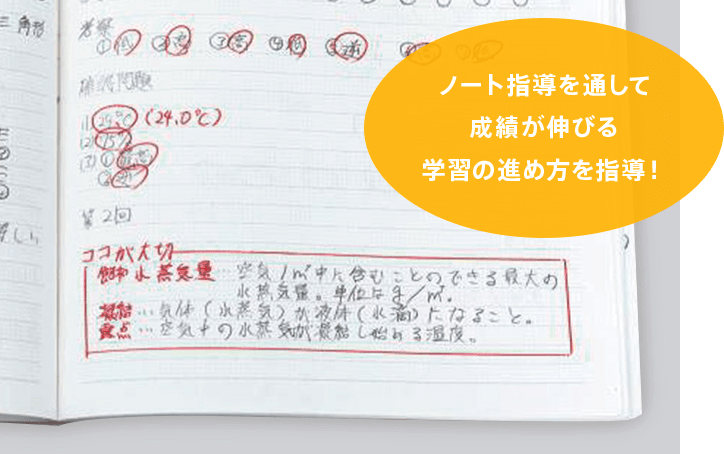 三角形
考察
①低 ②高 ③高 ④低 ⑤逆
練習問題
(1) 24℃ (24.0℃)
(2) 75%
(3) ①
②逆
第2回
ココが大切
飽和水蒸気量…空気1m³中に含むことのできる最大の
水蒸気量。単位はg/m³。
凝結…気体(水蒸気)が液体(水滴)になること。
露点…空気中の水蒸気が凝結し始める温度。
ノート指導を通して
成績が伸びる
学習の進め方を指導!